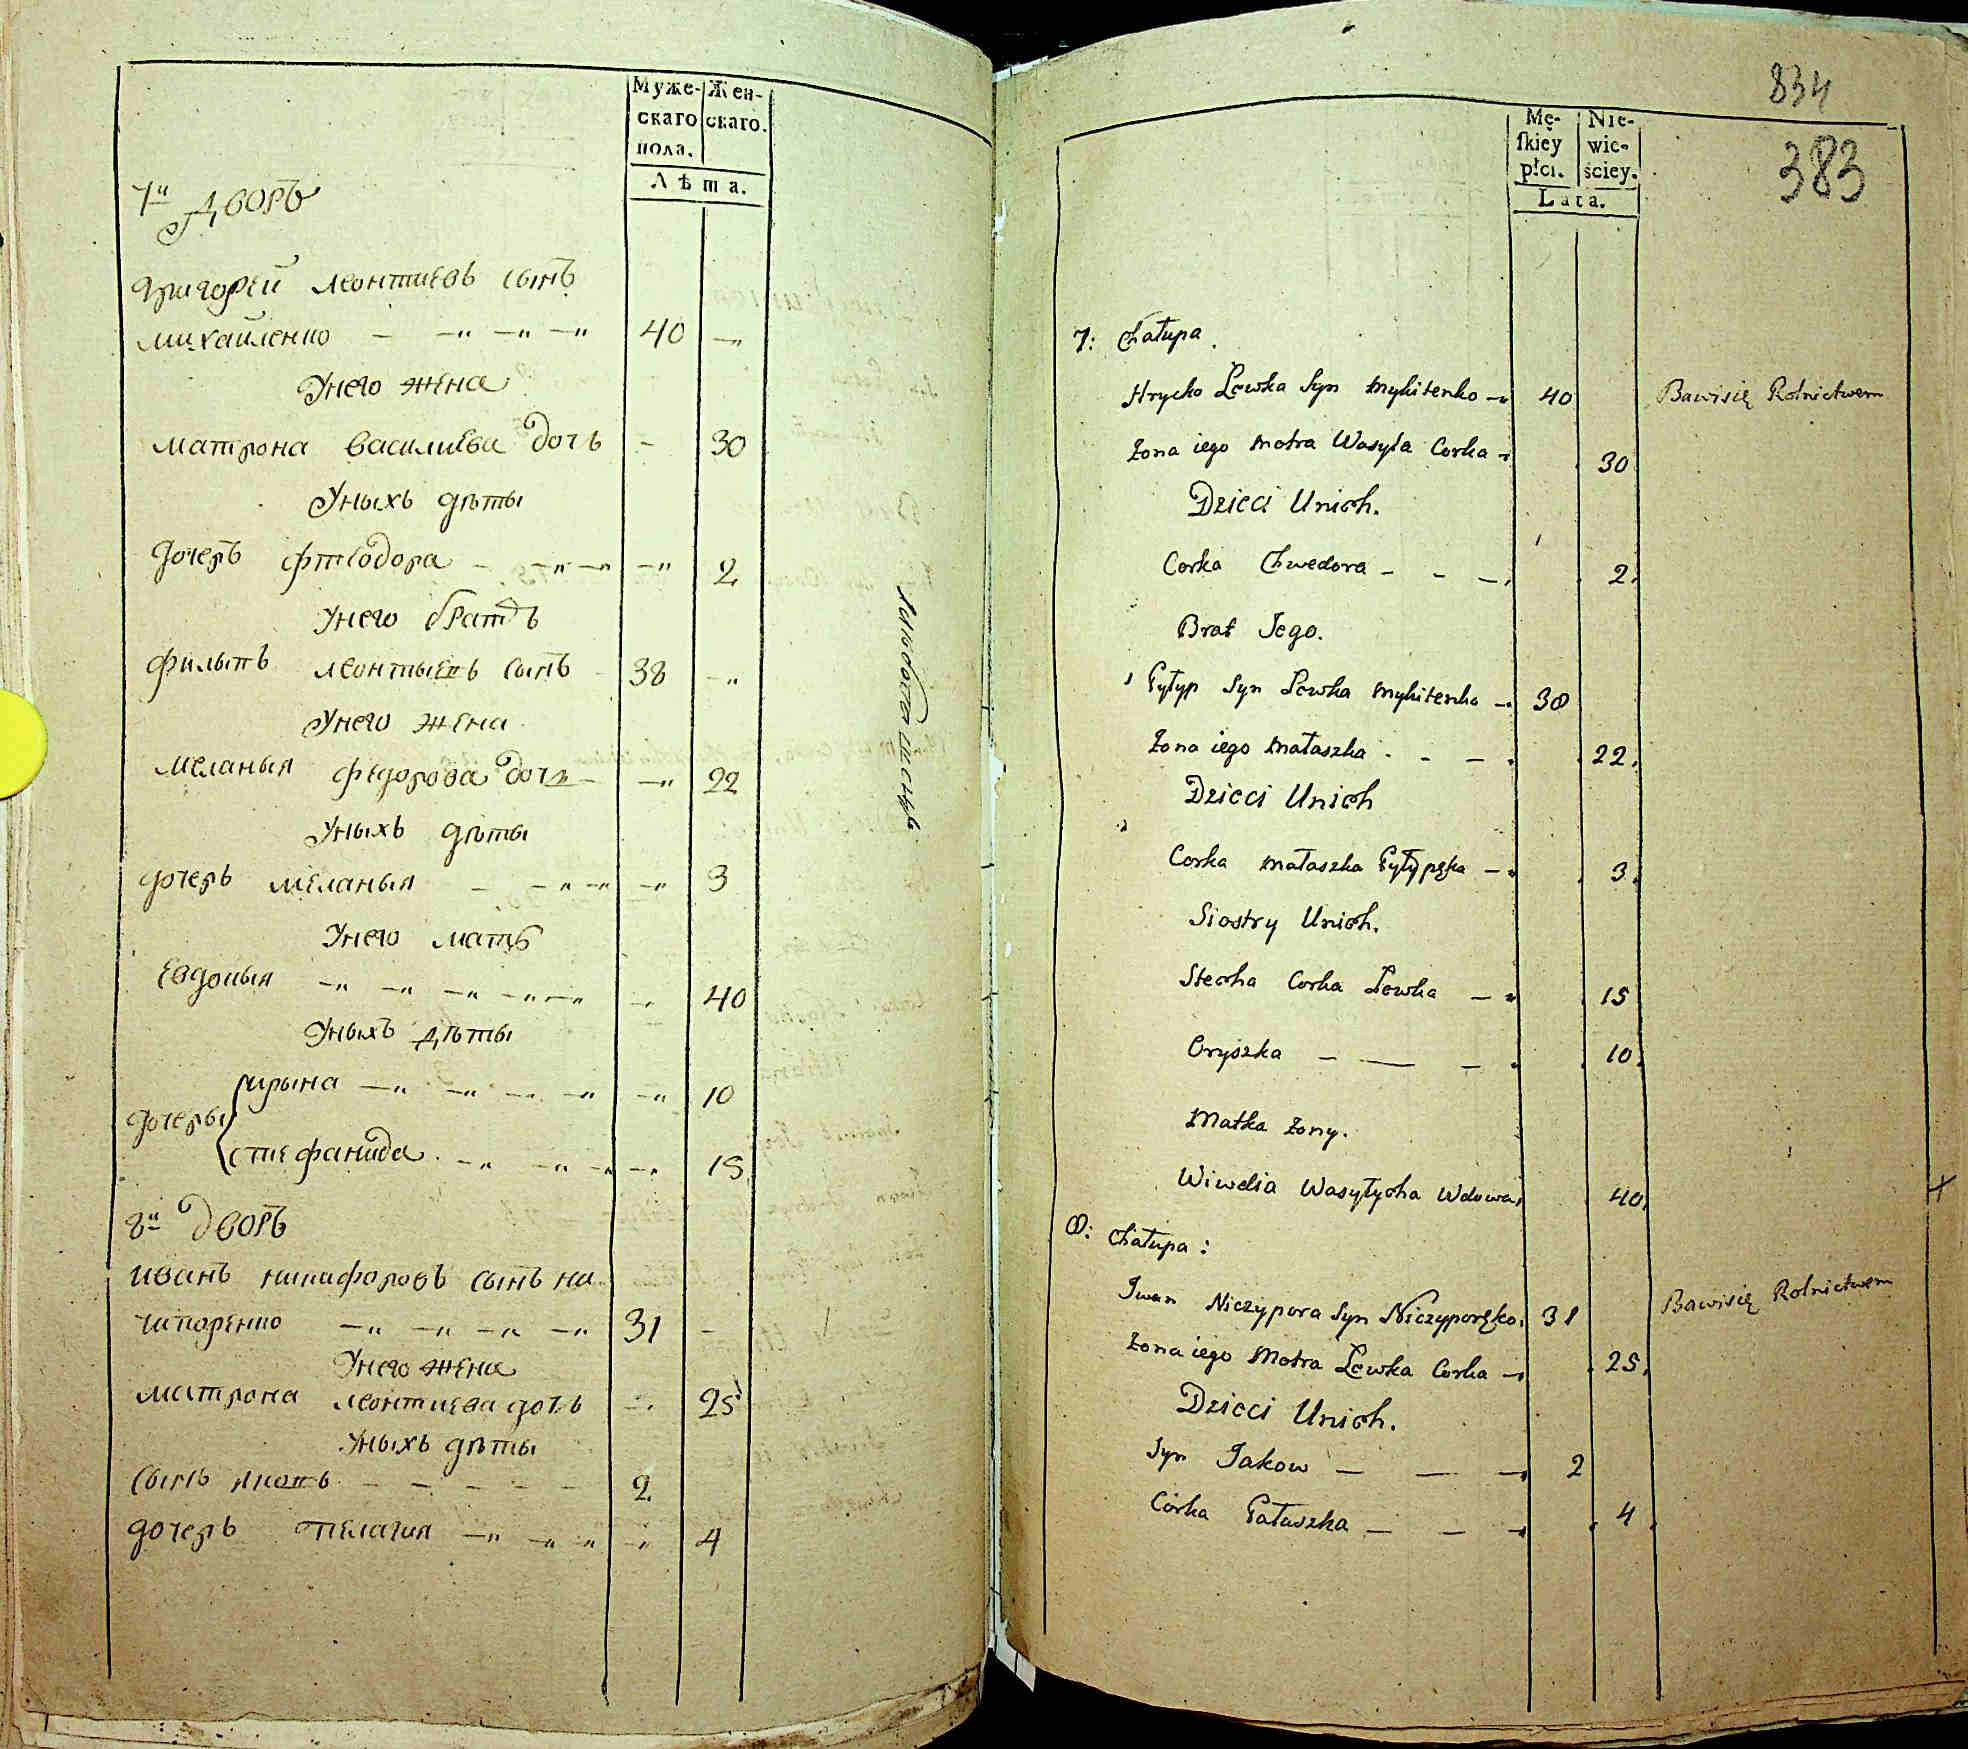 Муже- Жен-
скаго скаго.
пола.
Лѣта.
7й Дворъ
Григорей леонтиевъ сынъ
михайленко — —„ —„ —„ 40 —„
Унего жена
матрона василиева дочь - 30
Уныхъ дѣты
дочеръ фтеодора - —„ —„ —„ 2
Унего братъ
филыпъ леонтыевъ сынъ - 38 -„
Унего жена
меланыя федорова дочь - —„ 22
Уныхъ дѣты
дочеръ меланыя - -„ -„ —„ 3
Унего мать
Евдокыя —„ —„ —„ —„ —„ —„ 40
Уныхъ дѣты
дочеры
ирына —„ —„ —„ —„ —„ 10
стефанида. —„ —„ —„ —„ 15
8й Дворъ
иванъ никифоровъ сынъ ни
чипоренко —„ —„ —„ —„ 31 -
Унего жена
матрона леонтиева дочь -„ 25
Уныхъ дѣты
сынъ яковъ - - - - - 2
дочеръ пелагия —„ —„ —„ -„ 4
834
383
Mę- Nie-
skiey wie-
płci. ściey.
Lata.
7: Chałupa.
Hrycko Lewka Syn Mykitenko — 40 Bawisię Rolnictwem
Zona iego Motra Wasyla Corka — 30
Dzieci Unich.
Corka Chwedora - - — 2.
Brat Jego.
Pyłyp Syn Lewka Mykitenko — 38
Zona iego Małaszka - - — 22.
Dzieci Unich
Corka Małaszka Pyłypęka — 3.
Siostry Unich.
Stecha Corka Lewka — 15
Oryszka — — — 10.
Matka Zony.
Wiwdia Wasyłycha Wdowa, 40.
8: Chałupa:
Iwan Niczypora Syn Niczyporęko. 31 Bawisię Rolnictwem
Zona iego Motra Lewka Corka — 25.
Dzieci Unich.
Syn Jakow — — — 2
Córka Pałaszka — — — 4.